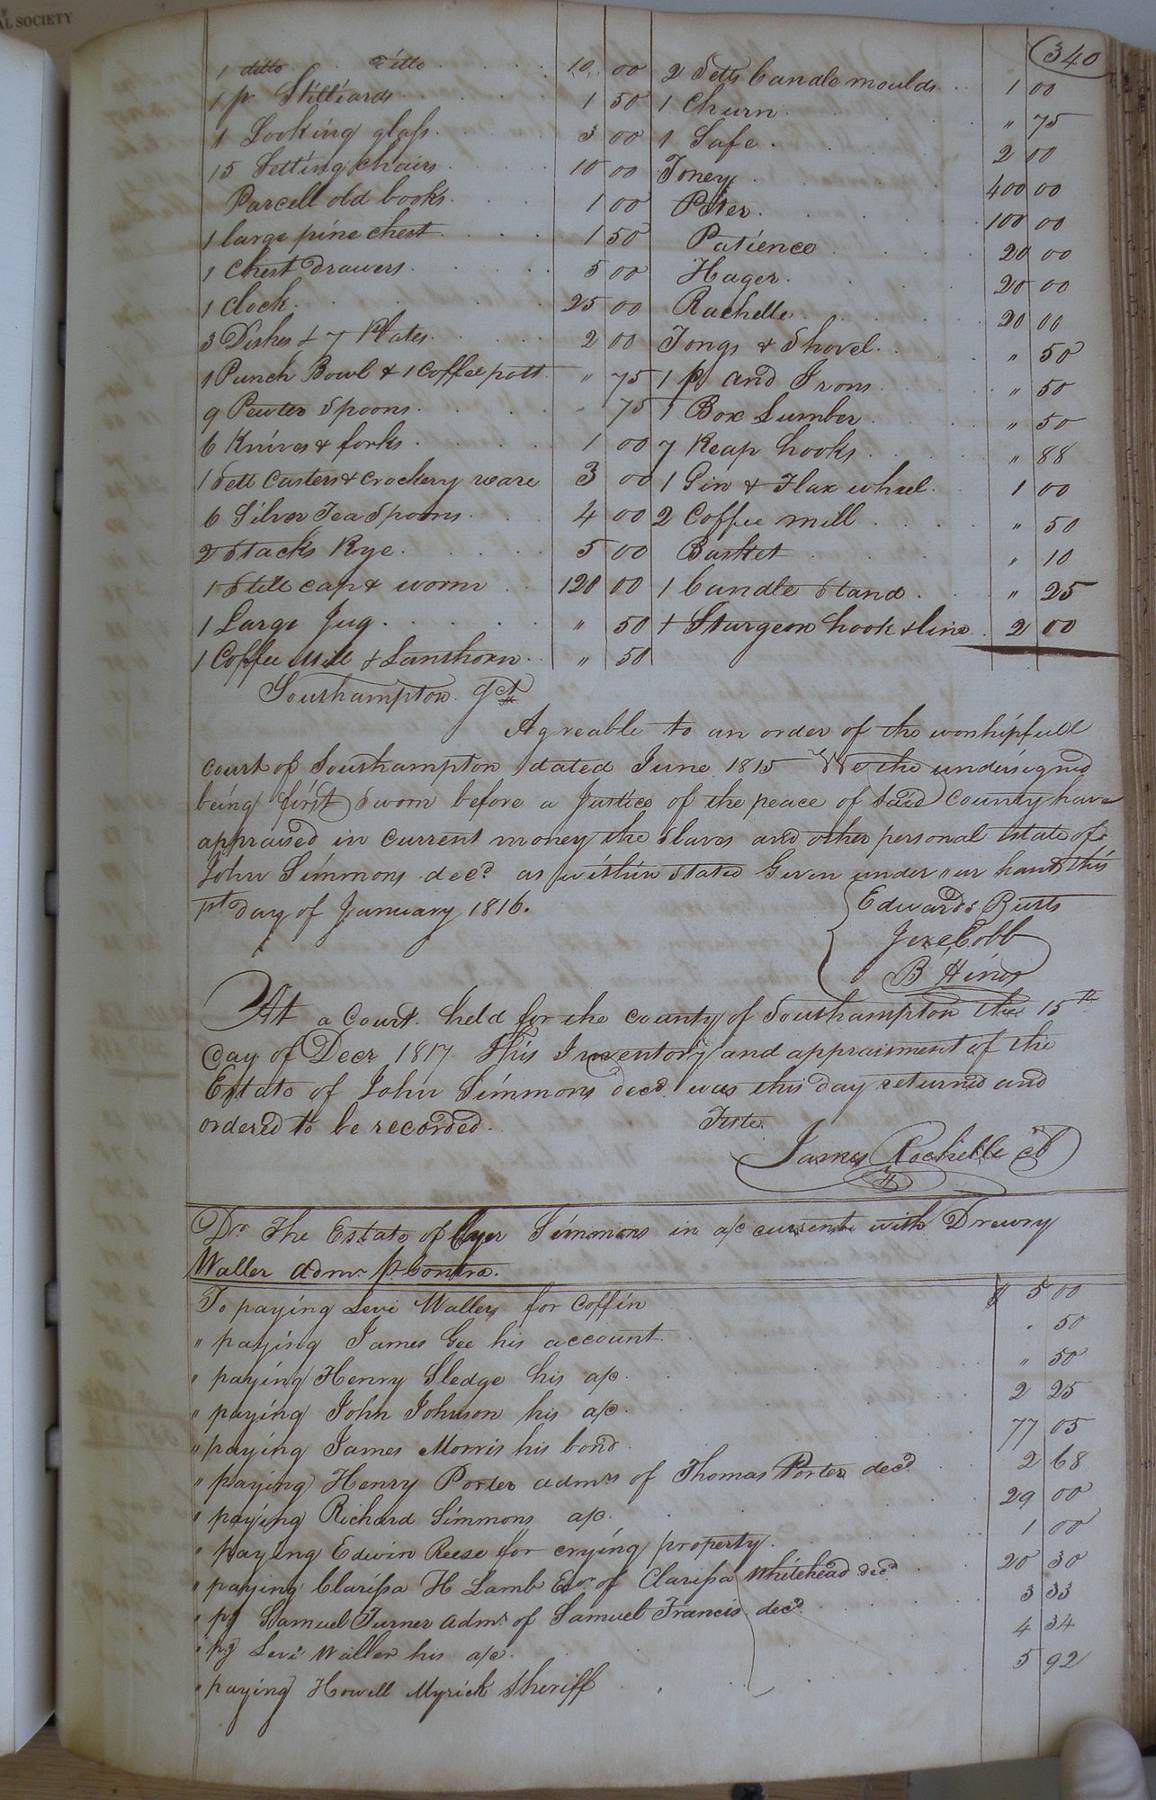 AL SOCIETY
340
1 ditto ditto 10 00
1 pr Stilliards 1 50
1 Looking glass 3 00
15 Setting chairs 10 00
Parcell old books 1 00
1 large pine chest 1 50
1 Chest Drawers 5 00
1 Clock 25 00
3 Dishes & 7 Plates 2 00
1 Punch Bowl & 1 Coffee pott " 75
9 Pewter Spoons " 75
6 Knives & forks 1 00
1 Sett Casters & Crockery ware 3 00
6 Silver Tea Spoons 4 00
2 Stacks Rye 5 00
1 Still cap & worm 120 00
1 Large Jug " 50
1 Coffee Mill & Lanthorn " 50
2 Setts Candle moulds 1 00
1 Churn " 75
1 Safe 2 00
Toney 400 00
Peter 100 00
Patience 20 00
Hager 20 00
Rachelle 20 00
Tongs & Shovel " 50
1 pr and Irons " 50
1 Box Lumber " 50
7 Reap hooks " 88
1 Gin & Flax wheel 1 00
2 Coffee mill " 50
Basket " 10
1 Candle Stand " 25
1 Sturgeon hook & line 2 00
Southampton Sct
Agreable to an order of the worshipfull
court of Southampton dated June 1815 We the undersigned
being first Sworn before a Justice of the peace of Said County have
appraised in current money the slaves and other personal Estate of
John Simmons decd as within stated Given under our hands this
1st Day of January 1816.
Edwards Butts
Jere Cobb
B Hines
At a Court held for the county of Southampton the 15th
day of Decr 1817 This Inventory and appraisment of the
Estate of John Simmons decd was this day returned and
ordered to be recorded.
Teste
James Rochelle
Dr The Estate of Ayer Simmons in a/c current with Drewry
Waller Admr p Contra.
To paying Levi Waller for Coffin $ 5 00
" paying James Gee his account " 50
" paying Henry Sledge his a/c " 50
" paying John Johnson his a/c 2 25
" paying James Morris his bond 77 05
" paying Henry Porter admr of Thomas Porter decd 2 68
" paying Richard Simmons a/c 29 00
" paying Edwin Reese for crying property 1 00
" paying Clarissa H Lamb Exr of Clarissa Whitehead decd 20 30
" pg Samuel Turner admr of Samuel Francis decd 3 33
" pg Levi Waller his a/c 4 34
" paying Howell Myrick Sheriff 5 92